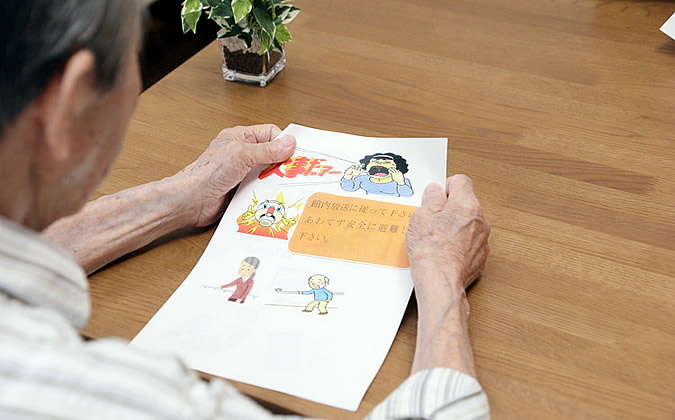 火事だァ〜
館内放送に従って下さい
あわてず安全に避難し
下さい。